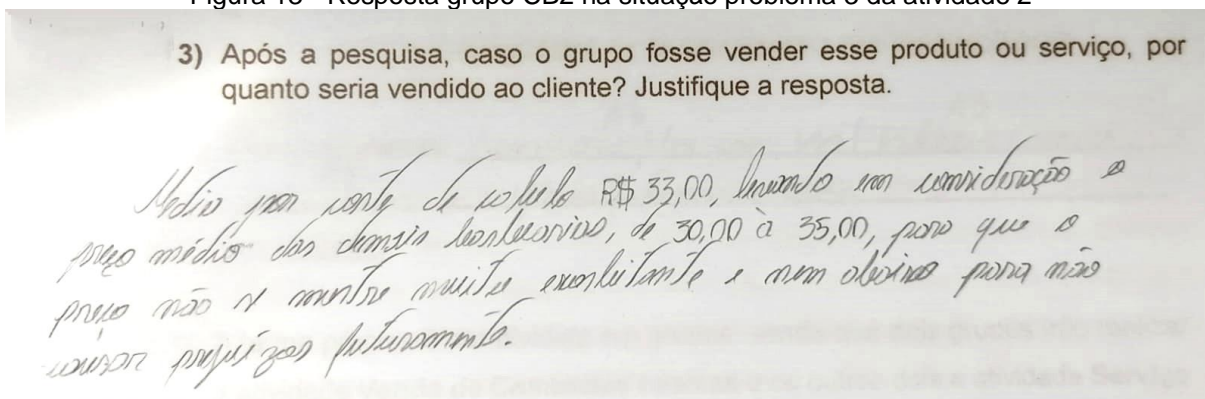 Figura 18 - Resposta grupo CB2 na situação problema 3 da atividade 2
3) Após a pesquisa, caso o grupo fosse vender esse produto ou serviço, por
quanto seria vendido ao cliente? Justifique a resposta.
Média por corte de cabelo R$ 33,00, levando em consideração o
preço médio das demais barbearias, de 30,00 à 35,00, para que o
preço não se mostre muito exorbitante e nem para não
causar prejuízos futuramente.